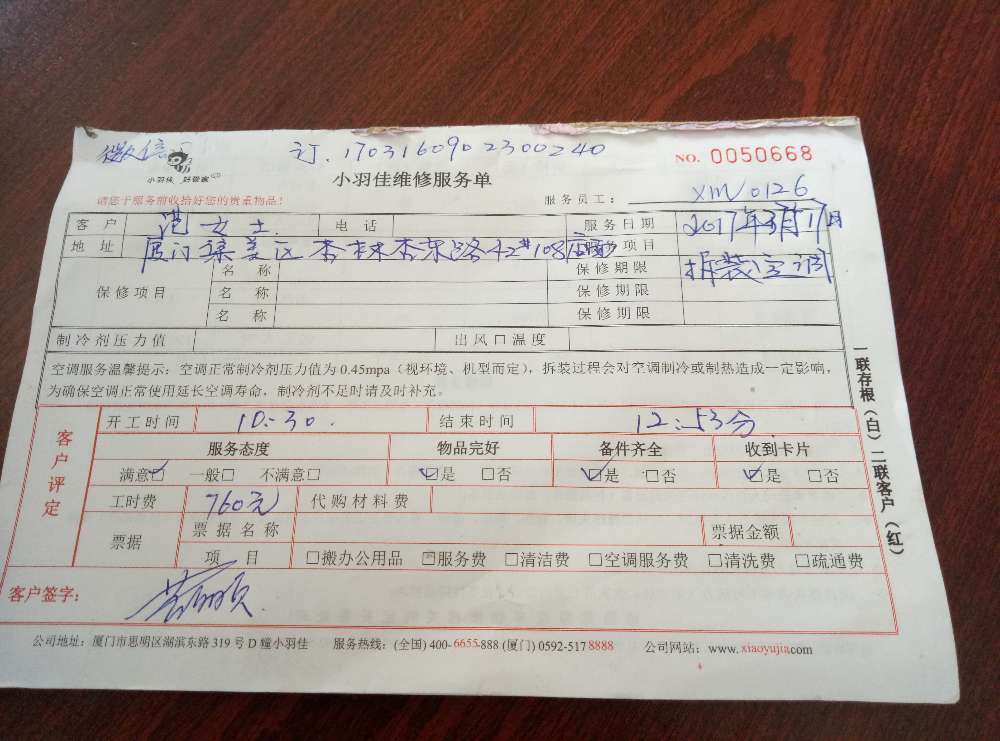 微信 订.1703160902300240 NO. 0050668
小羽佳 好管家
小羽佳维修服务单
请您于服务前收拾好您的贵重物品! 服务员工: XM0126
客户 女士 电话 服务日期 2017年3月17日
地址 厦门集美区杏林杏东路42#108店面 服务项目 拆装空调
保修项目 名称 保修期限
名称 保修期限
名称 保修期限
制冷剂压力值 出风口温度
空调服务温馨提示:空调正常制冷剂压力值为0.45mpa(视环境、机型而定),拆装过程会对空调制冷或制热造成一定影响,
为确保空调正常使用延长空调寿命,制冷剂不足时请及时补充。
客户评定
开工时间 10:30. 结束时间 12:53分
服务态度 物品完好 备件齐全 收到卡片
满意☑ 一般□ 不满意□ ☑是 □否 ☑是 □否 ☑是 □否
工时费 760元 代购材料费
票据 票据名称 票据金额
项目 □搬办公用品 □服务费 □清洁费 □空调服务费 □清洗费 □疏通费
客户签字:
公司地址:厦门市思明区湖滨东路319号D幢小羽佳 服务热线:(全国)400-6655-888(厦门)0592-5178888 公司网站:www.xiaoyujia.com
一联存根(白)二联客户(红)